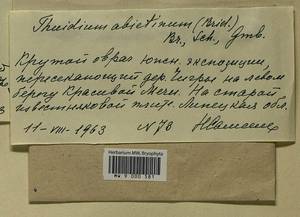 Thuidium abietinum (Brid.)
Br., Sch., Gmb.
Крутой овраг южн. экспозиции,
пересекающий дер. на левом
берегу Красивой Мечи. На старой
известняковой плите. Липецкая обл.
11-VIII-1963 N 78
Herbarium MW, Bryophyta
MW 9 000 581